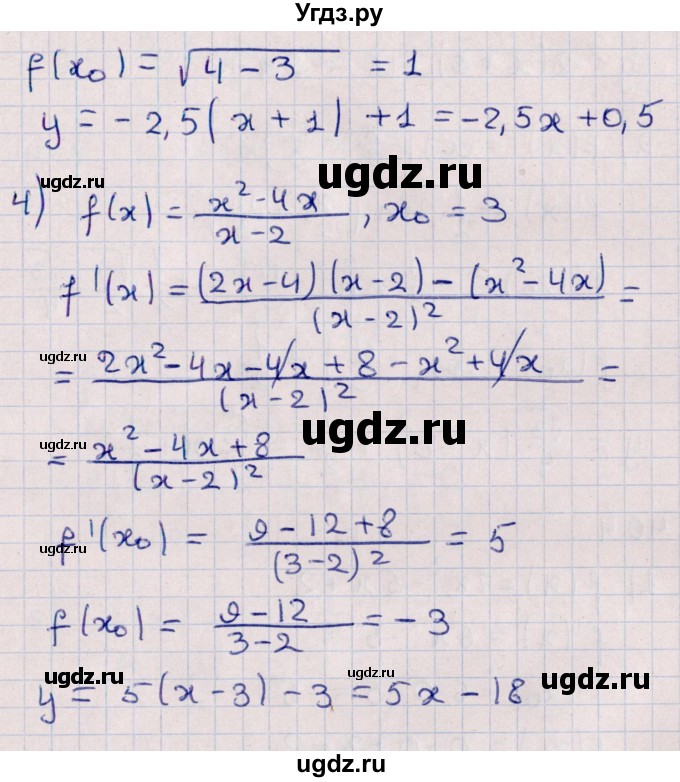 Угдз.ру
f(x₀) = √(4 - 3) = 1
y = - 2,5(x + 1) + 1 = -2,5x + 0,5
ugdz.ru
ugdz.ru
4) f(x) = (x² - 4x)/(x - 2), x₀ = 3
f'(x) = ((2x - 4)(x - 2) - (x² - 4x))/(x - 2)² =
ugdz.ru
= (2x² - 4x - 4x + 8 - x² + 4x)/(x - 2)² =
ugdz.ru
= (x² - 4x + 8)/(x - 2)²
ugdz.ru
f'(x₀) = (9 - 12 + 8)/(3 - 2)² = 5
f(x₀) = (9 - 12)/(3 - 2) = - 3
ugdz.ru
ugdz.ru
y = 5(x - 3) - 3 = 5x - 18
ugdz.ru
ugdz.ru